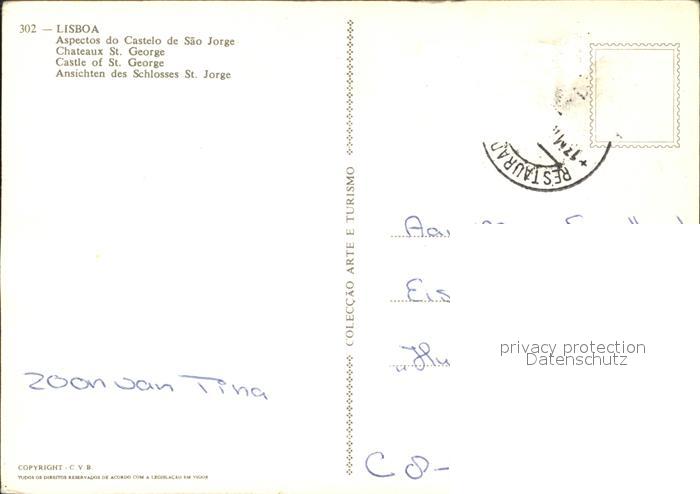 302 — LISBOA
Aspectos do Castelo de São Jorge
Chateaux St. George
Castle of St. George
Ansichten des Schlosses St. Jorge
COLECÇÃO ARTE E TURISMO
RESTAURAD
Aa
Eis
"Hu
privacy protection
Datenschutz
zoon van Tina
C 8-
COPYRIGHT - C V B.
TODOS OS DIREITOS RESERVADOS DE ACORDO COM A LEGISLAÇÃO EM VIGOR